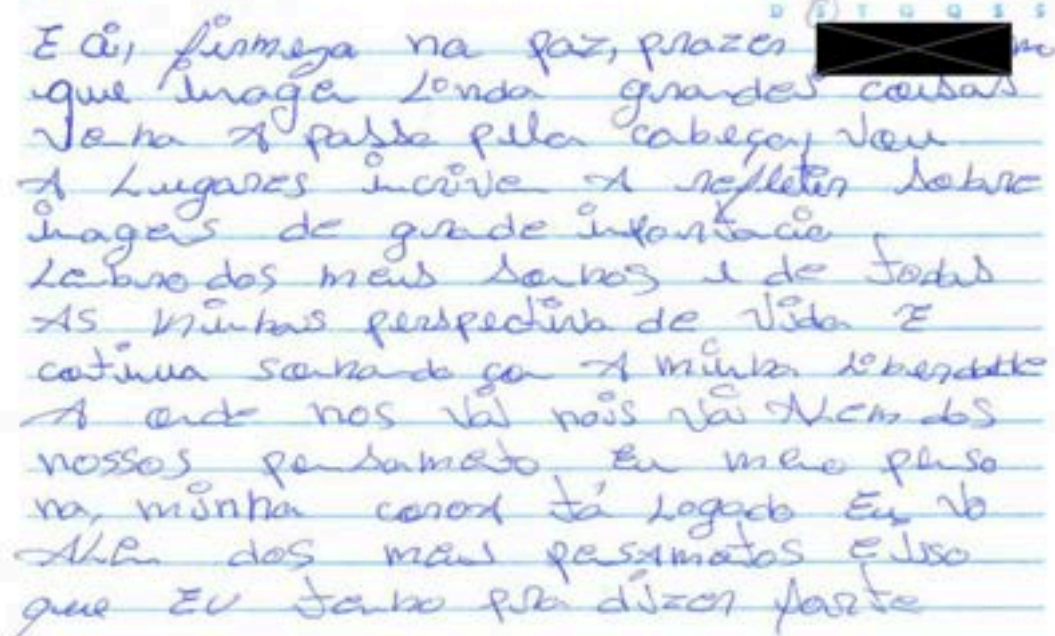 D S T Q Q S S
E aí, firmeza na paz, prazer
que imagen Linda grandes coisas
Venha A passa pela cabeça, Vou
A Lugares incrive A refletir sobre
imagens de grade inportacia
Lenbro dos meus sonhos e de todas
AS minhas perspectiva de Vida E
continua sonhando con A minha Liberdade
A onde nos Vai nois Vai ALem dos
nossos pensamento Eu mano penso
na, minha coroa tá Logado Eu, Vo
ALen dos meus pesamatos E isso
que EU tenho pra dizer forte